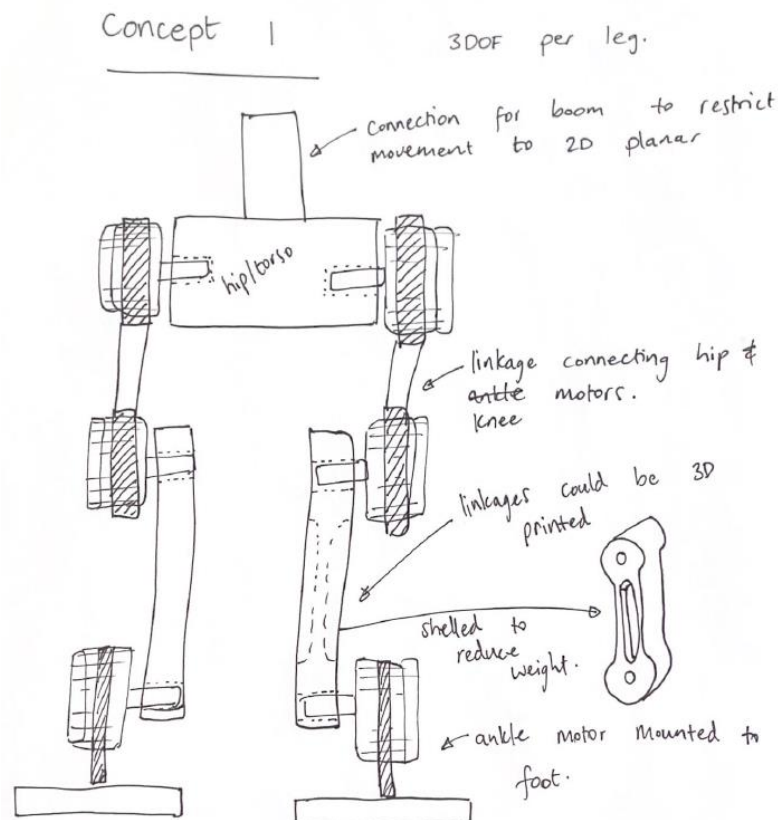 Concept 1
3DOF per leg.
connection for boom to restrict
movement to 2D planar
hip/torso
linkage connecting hip &
ankle motors.
knee
linkages could be 3D
printed
shelled to
reduce
weight.
ankle motor mounted to
foot.